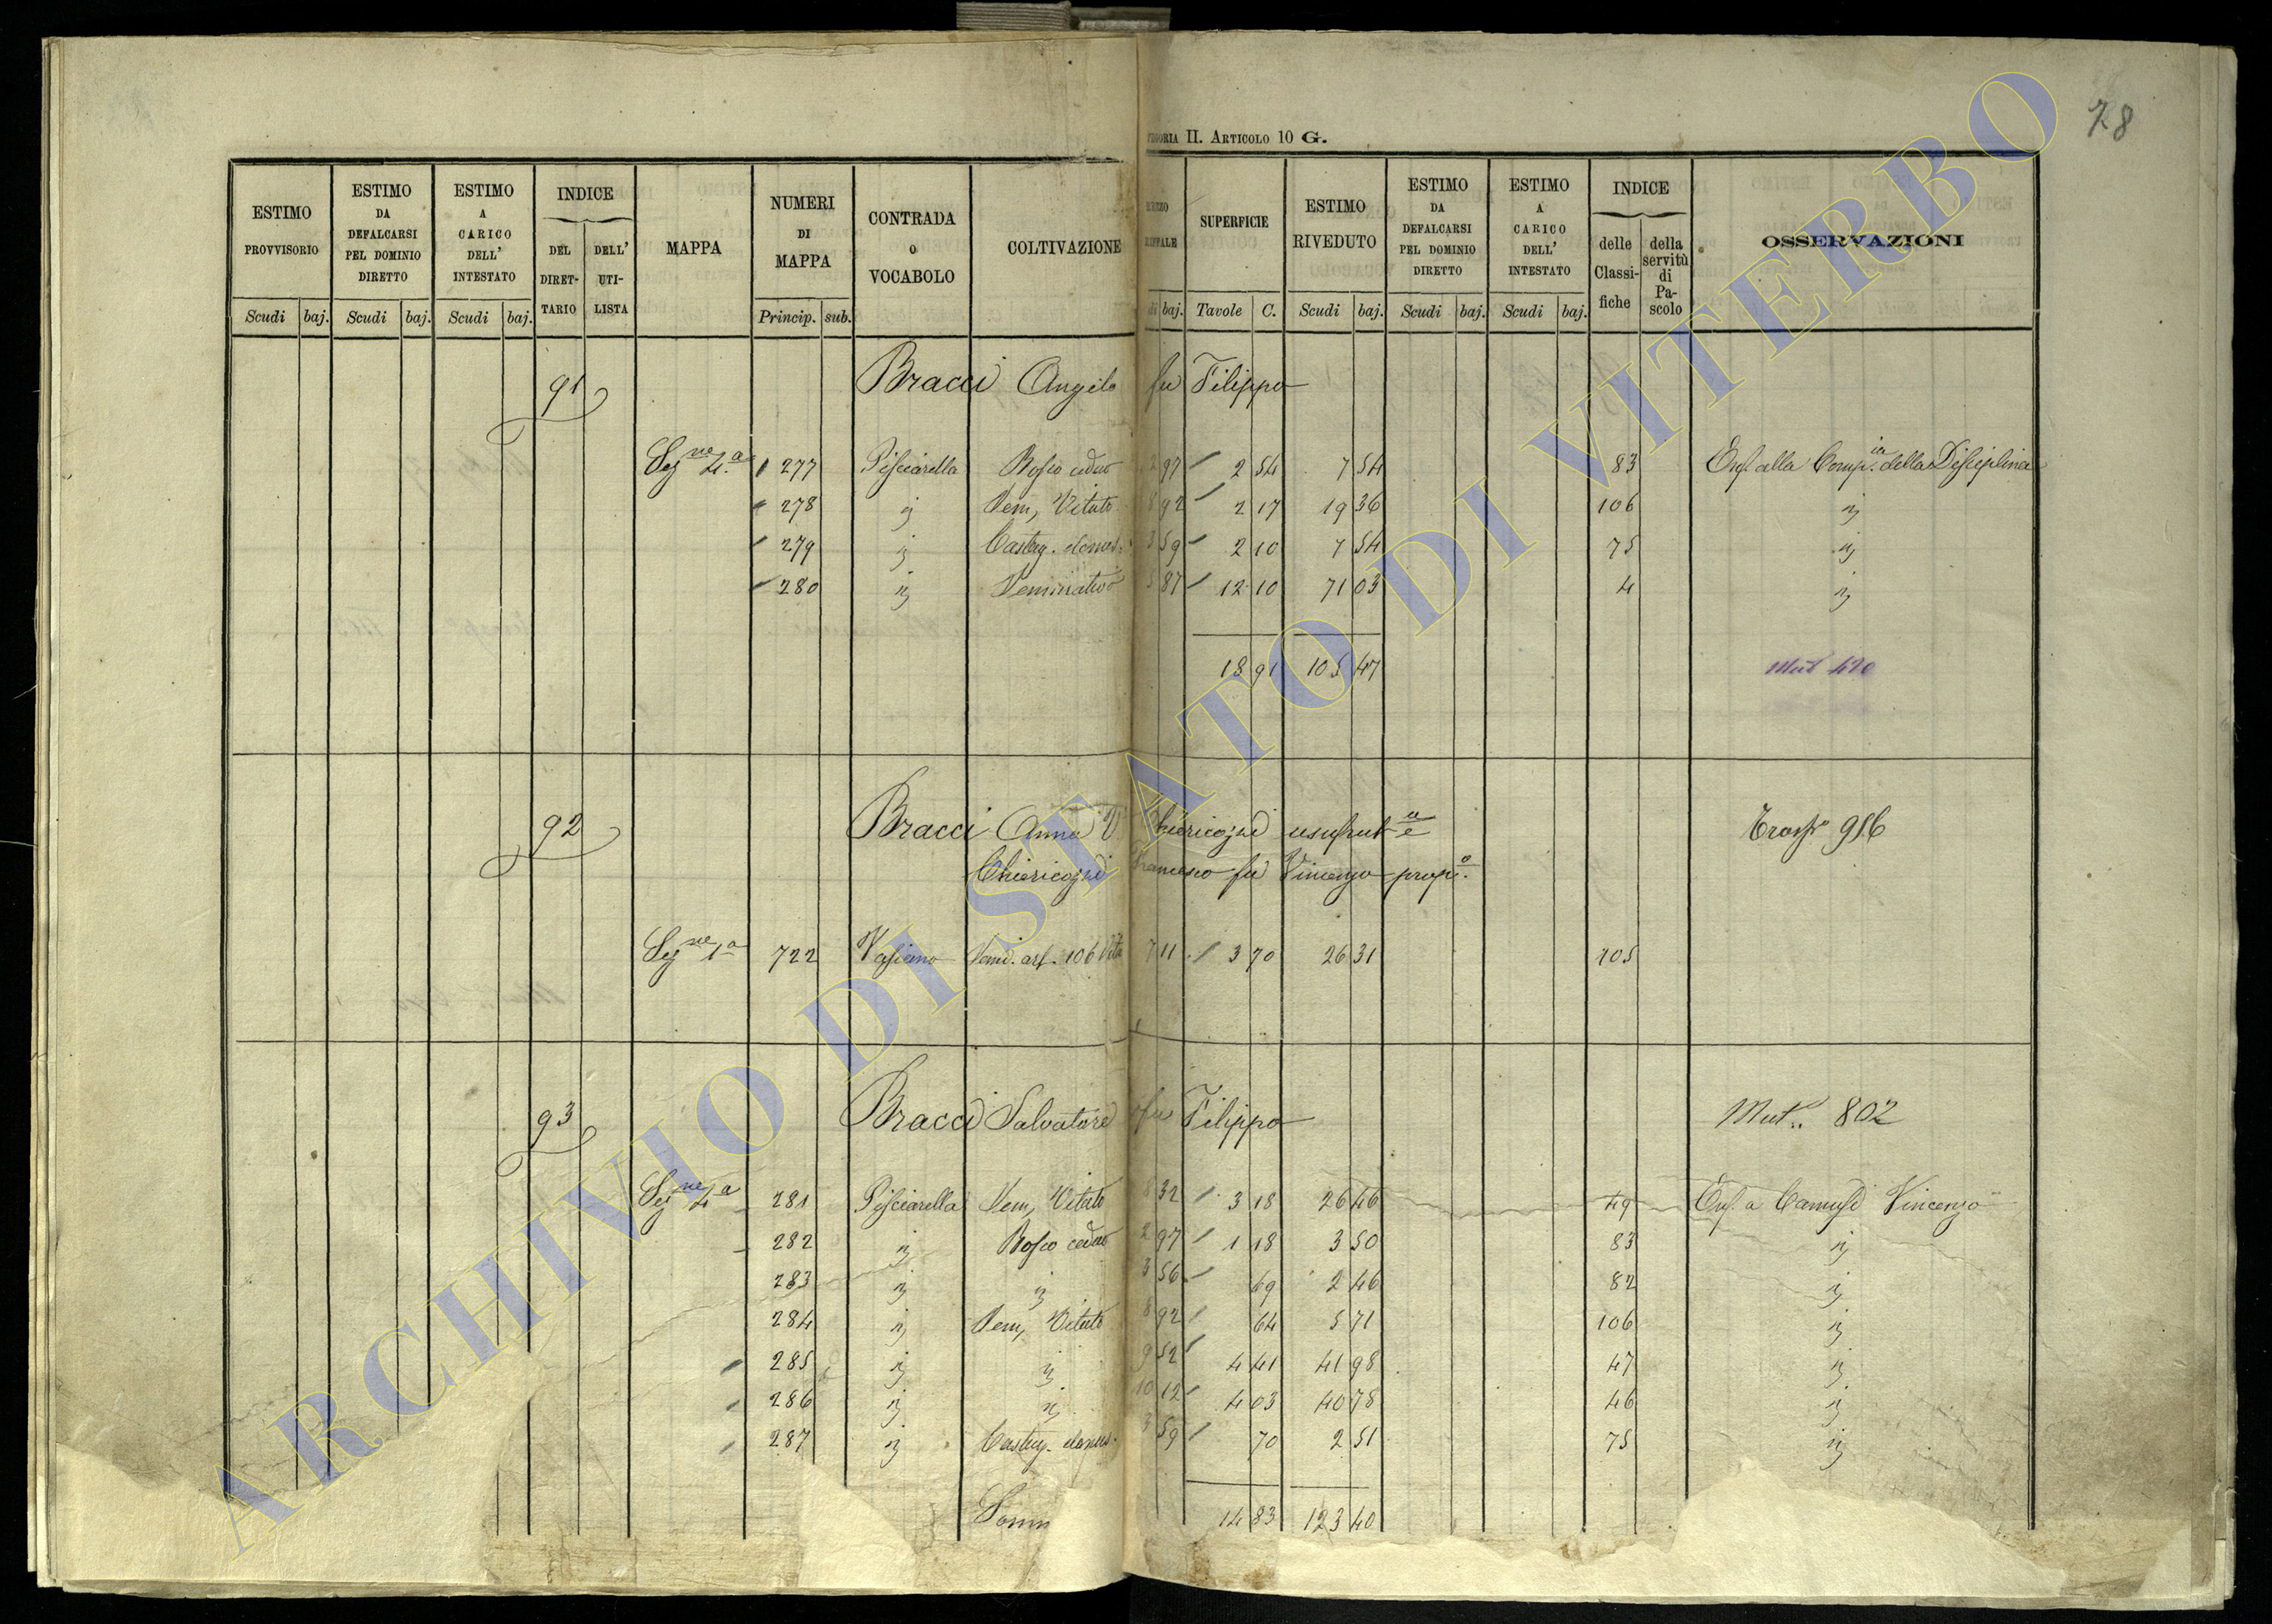 78
II. Articolo 10 G.
ESTIMO PROVVISORIO | ESTIMO DA DEFALCARSI PEL DOMINIO DIRETTO | ESTIMO A CARICO DELL' INTESTATO | INDICE DEL DIRETTARIO | DELL' UTILISTA | MAPPA | NUMERI DI MAPPA | CONTRADA O VOCABOLO | COLTIVAZIONE | SUPERFICIE | ESTIMO RIVEDUTO | ESTIMO DA DEFALCARSI PEL DOMINIO DIRETTO | ESTIMO A CARICO DELL' INTESTATO | INDICE delle Classifiche | della servitù di Pascolo | OSSERVAZIONI
Scudi | baj. | Scudi | baj. | Scudi | baj. | Princip. | sub. | baj. | Tavole | C. | Scudi | baj. | Scudi | baj. | Scudi | baj.
91 Bracci Angelo fu Filippo
Sezne 4.a 277 Pisciarella Bosco ceduo 2 97 2 54 7 54 83 Enf. alla Comp.ia della Disciplina
278 ij Sem, Vitato 8 92 2 17 19 36 106 ij
279 ij Castag. domes. 3 59 2 10 7 54 75 ij
280 ij Seminativo 5 87 12 10 71 03 4 ij
18 91 105 47 Mut 420
92 Bracci Anna V. Chiericozzi usufrut.e Trasp 956
Chiericozzi Francesco fu Vincenzo prop.o
Sezne 1a 722 Sem. 106 7 11 3 70 26 31 105
93 Bracci Salvatore fu Filippo Mut.. 802
Sezne 4a 281 Pisciarella Sem, Vitato 8 32 3 18 26 46 49 Enf. a Camusi Vincenzo
282 ij Bosco ceduo 2 97 1 18 3 50 83 ij
283 ij ij 3 56 69 2 46 82 ij
284 ij Sem, Vitato 8 92 64 5 71 106 ij
285 ij ij 9 52 4 41 41 98 47 ij
286 ij ij 10 12 4 03 40 78 46 ij
287 ij Castag. domes. 3 59 70 2 51 75 ij
Somm 14 83 123 40
ARCHIVIO DI STATO DI VITERBO